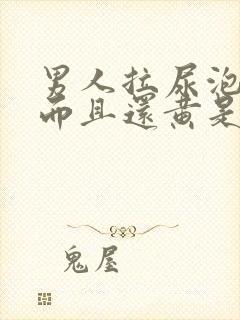 男人拉尿泡
而且還黃是
鬼屋